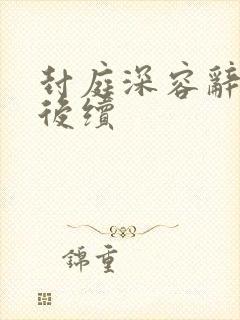 封庭深容辭
後續
錦重